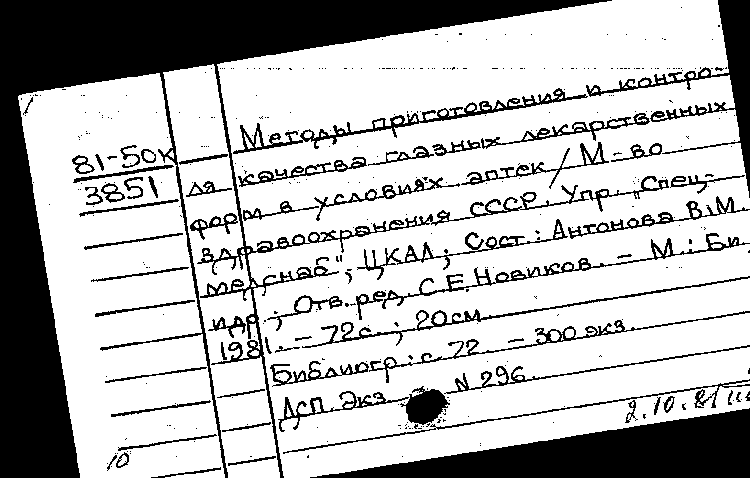 81-50К
3851
Методы приготовления и контро-
ля качества глазных лекарственных
форм в условиях аптек / М-во
здравоохранения СССР. Упр. "Спец-
медснаб", ЦКАЛ; Сост.: Антонова В.М.
и др.; Отв. ред. С.Е. Новиков. - М.: Б.и.,
1981. - 72 с.; 20 см.
Библиогр.: с. 72. - 300 экз.
ДСП. Экз. N 296.
2.10.81
10